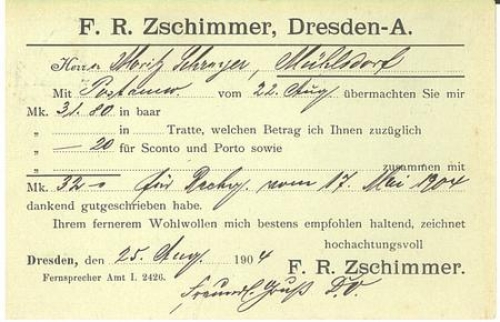 F. R. Zschimmer, Dresden-A.
Herrn Moritz Schreyer, Mühlsdorf
Mit Postanw. vom 22. Aug übermachten Sie mir
Mk. 31.80 in baar
„ in Tratte, welchen Betrag ich Ihnen zuzüglich
„ — 20 für Sconto und Porto sowie
„ zusammen mit
Mk. 32 - für Rechg. vom 17. Mai 1904
dankend gutgeschrieben habe.
Ihrem fernerem Wohlwollen mich bestens empfohlen haltend, zeichnet
hochachtungsvoll
Dresden, den 25. Aug. 1904
F. R. Zschimmer.
Fernsprecher Amt I. 2426.
Freundl. Gruß D.O.